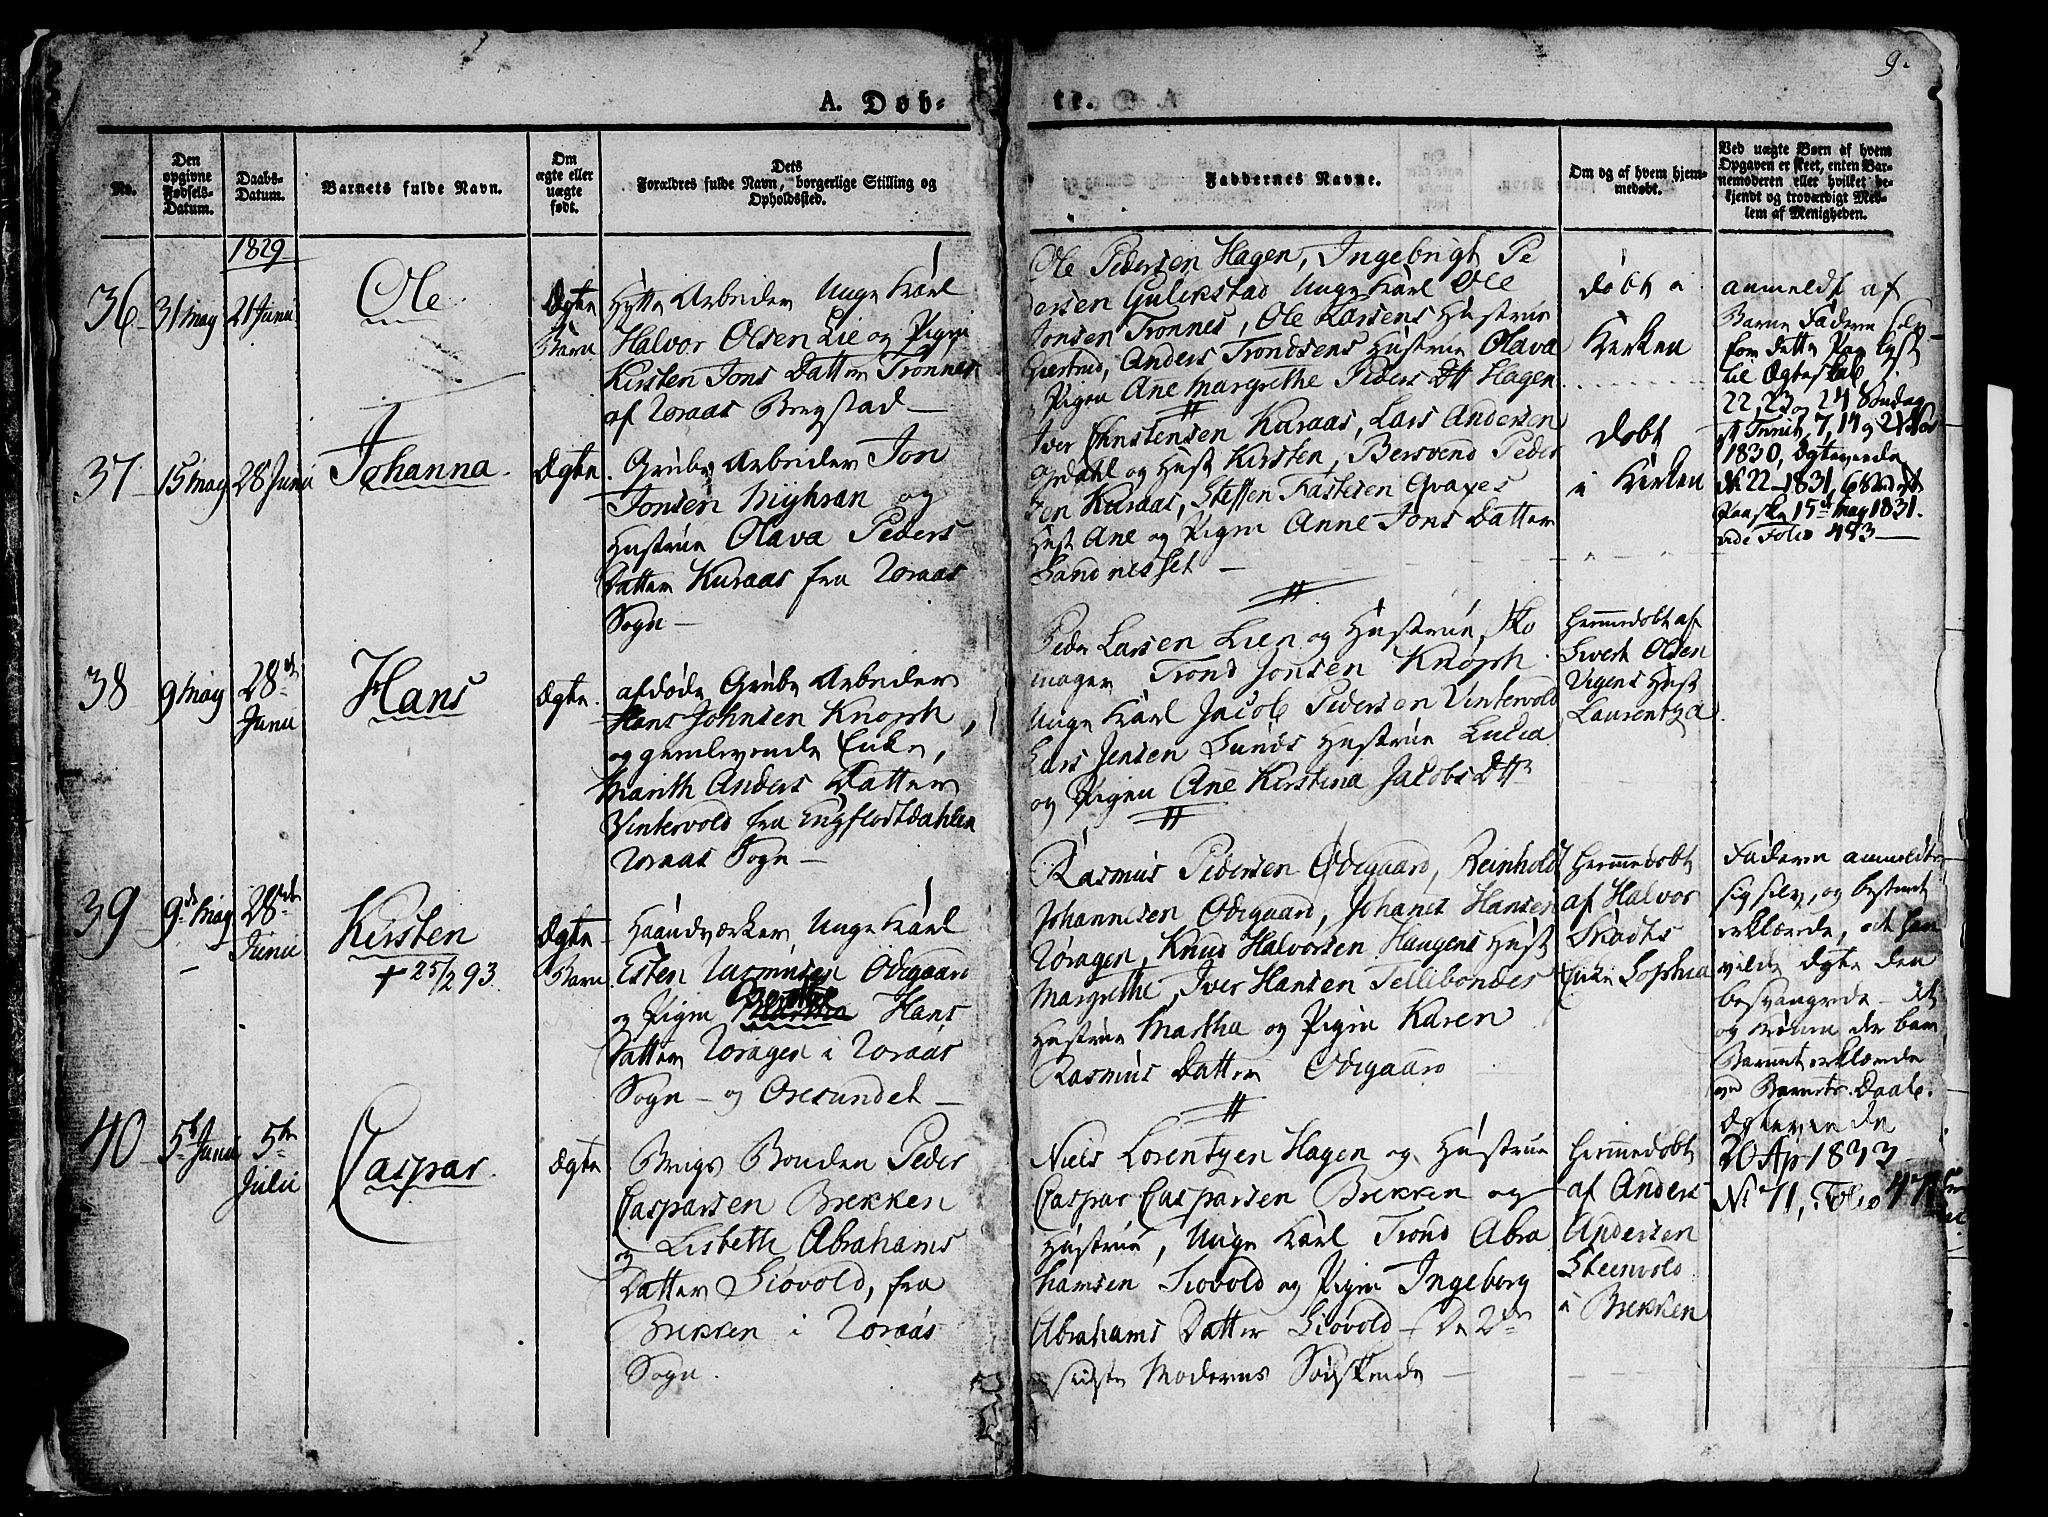 9.
A. Døb-
te.
No.
Den
opgivne
Fødsels-
Datum.
Daabs-
Datum.
Barnets fulde Navn.
Om
ægte eller
uægte
født.
Dets
Forældres fulde Navn, borgerlige Stilling og
Opholdssted.
Faddernes Navne.
Om og af hvem hjem-
medøbt.
Ved uægte Børn af hvem
Opgaven er skeet, enten Bar-
nemoderen eller hvilket be-
kjendt og troværdigt Med-
lem af Menigheden.
1829
36
31 May
21 Junii
Ole
Ægte
Barn
Hytte Arbeider Unge Karl
Halvor Olsen Lie og Pigen
Kirsten Jons Datter Tronnes
af Røraas Bergstad
Ole Pedersen Hagen, Ingebrigt Pe
dersen Gulikstad Unge Karl Ole
Jonsen Tronnes, Ole Larsens Hustrue
Giertrud, Anders Trondsens Hustrue Olava
Pigen Ane Margrethe Peders Dtt Hagen
døbt i
Kirken
anmeldt af
Barne Faderen selv
for dette Par lyst
til Ægteskab
22, 23, og 24 Søndag
1830, Ægteviede
No 22 1831, 6 Søndag
Paaske 15de May 1831.
vide Folio 453
37
15 May
28 Junii
Johanna
Ægte
Grube Arbeider Jon
Jonsen Myhran og
Hustrue Olava Peders
Datter Kuraas fra Røraas
Sogn
Iver Christensen Kuraas, Lars Andersen
Opdahl og Hust Kirsten, Bersvend Peder
sen Kuraas, Steffen Fastesen Graaes
Hust Ane og Pigen Anne Jons Datter
Sandnesset
døbt
i Kirken
38
9 May
28de
Junii
Hans
Ægte
afdøde Grube Arbeider
Hans Johnsen Knoph,
og gjenlevende Enke,
Marith Anders Datter
Vintervold fra Engflodtdahlen
Røraas Sogn
Peder Larsen Lien og Hustrue, Sko
mager Trond Jonsen Knoph
Unge Karl Jacob Pedersen Vintervold
Lars Jensen Sunds Hustrue Lucia
og Pigen Ane Kirstina Jacobs Dtt
Hiemmedøbt af
Sivert Olsen
Vigens Hust
Laurentza
39
9de May
28de
Junii
Kirsten
+ 25/2 93.
Ægte
Barn
Haandværker, Unge Karl
Esten Rasmusen Ødegaard
og Pigen Berethe Hans
Datter Røragen i Røraas
Sogn og Øresundet
Rasmus Pedersen Ødegaard, Reinhold
Johannesen Ødegaard, Johanes Hansen
Røragen, Knud Halvorsen Haugens Hust
Margrethe, Iver Hansen Tellebondes
Hustrue Martha og Pigen Karen
Rasmus Datter Ødegaard
Hiemmedøbt
af Halvor
Skadts
Enke Sophia
Faderen anmeldte
sig selv, og bestemt
erklærede, at han
vilde Ægte den
besvangrede det
Barnet erklærede
ved Barnets Daab.
Ægteviede
20 Ap 1833
No 11, Folio
40
5te Junii
5te
Julii
Caspar
Ægte
Brugs Bonden Peder
Caspersen Brekken
og Lisbeth Abrahams
Datter Siøvold, fra
Brekken i Røraas
Sogn.
Niels Lorentzen Hagen og Hustrue
Caspar Caspersen Brekken og
Hustrue, Unge Karl Trond Abra
hamsen Siøvold og Pigen Ingeborg
Abrahams Datter Siøvold De 2de
sidste Moderens Sødskende
Hiemmedøbt
af Anders
Andersen
Steenvold
i Brekken